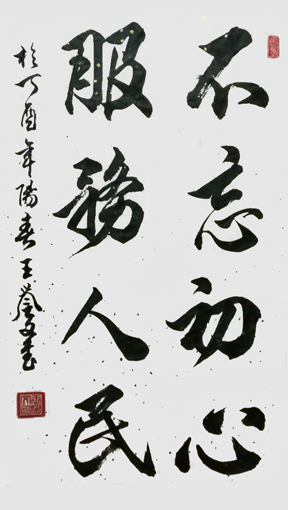 不忘初心
服務人民
於丁酉年陽春王